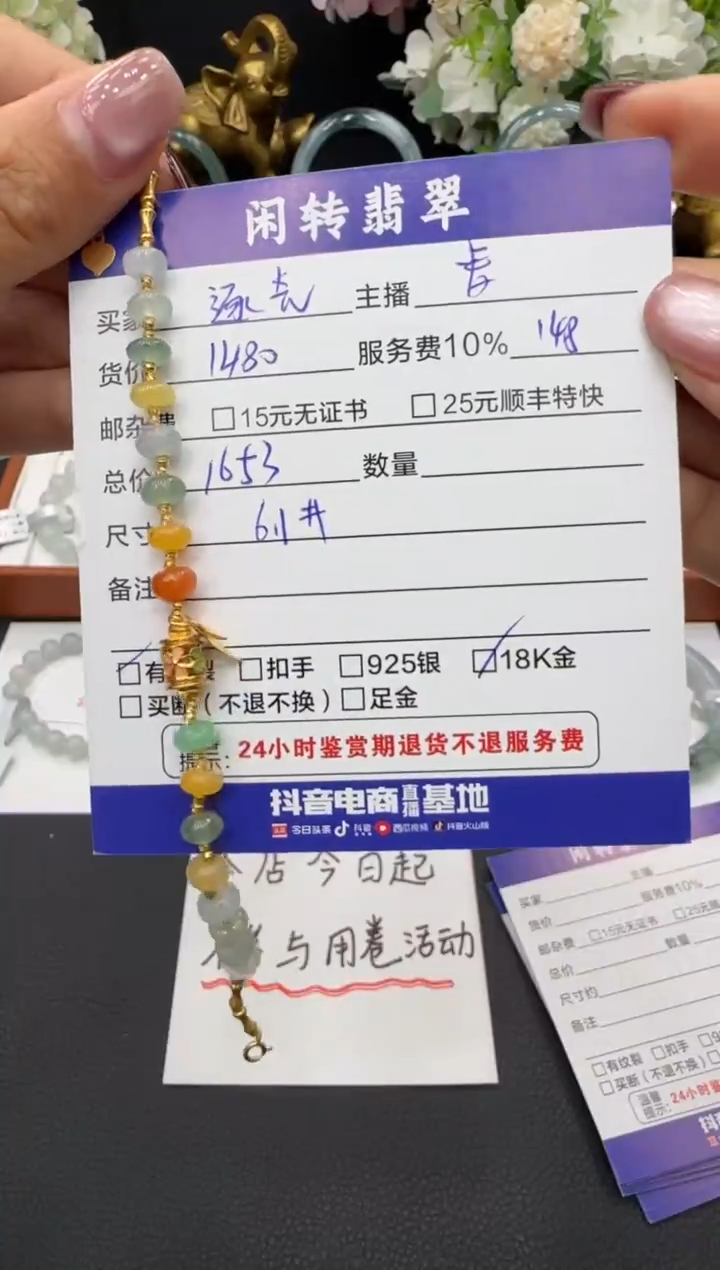 闲转翡翠
买家 涿尧 主播
货价 1480 服务费10% 148
邮杂费 □15元无证书 □25元顺丰特快
总价 1653 数量
尺寸 61#
备注
□有 裂 □扣手 □925银 □18K金
□买断(不退不换) □足金
提示: 24小时鉴赏期退货不退服务费
抖音电商直播基地
头条 今日头条 抖音 西瓜视频 抖音火山版
店今日起
与用卷活动
买家 主播
货价 服务费10%
邮杂费 □15元无证书 □25元顺
总价 数量
尺寸约
备注
□有纹裂 □扣手 □9
□买断(不退不换)
温馨提示: 24小时鉴
抖